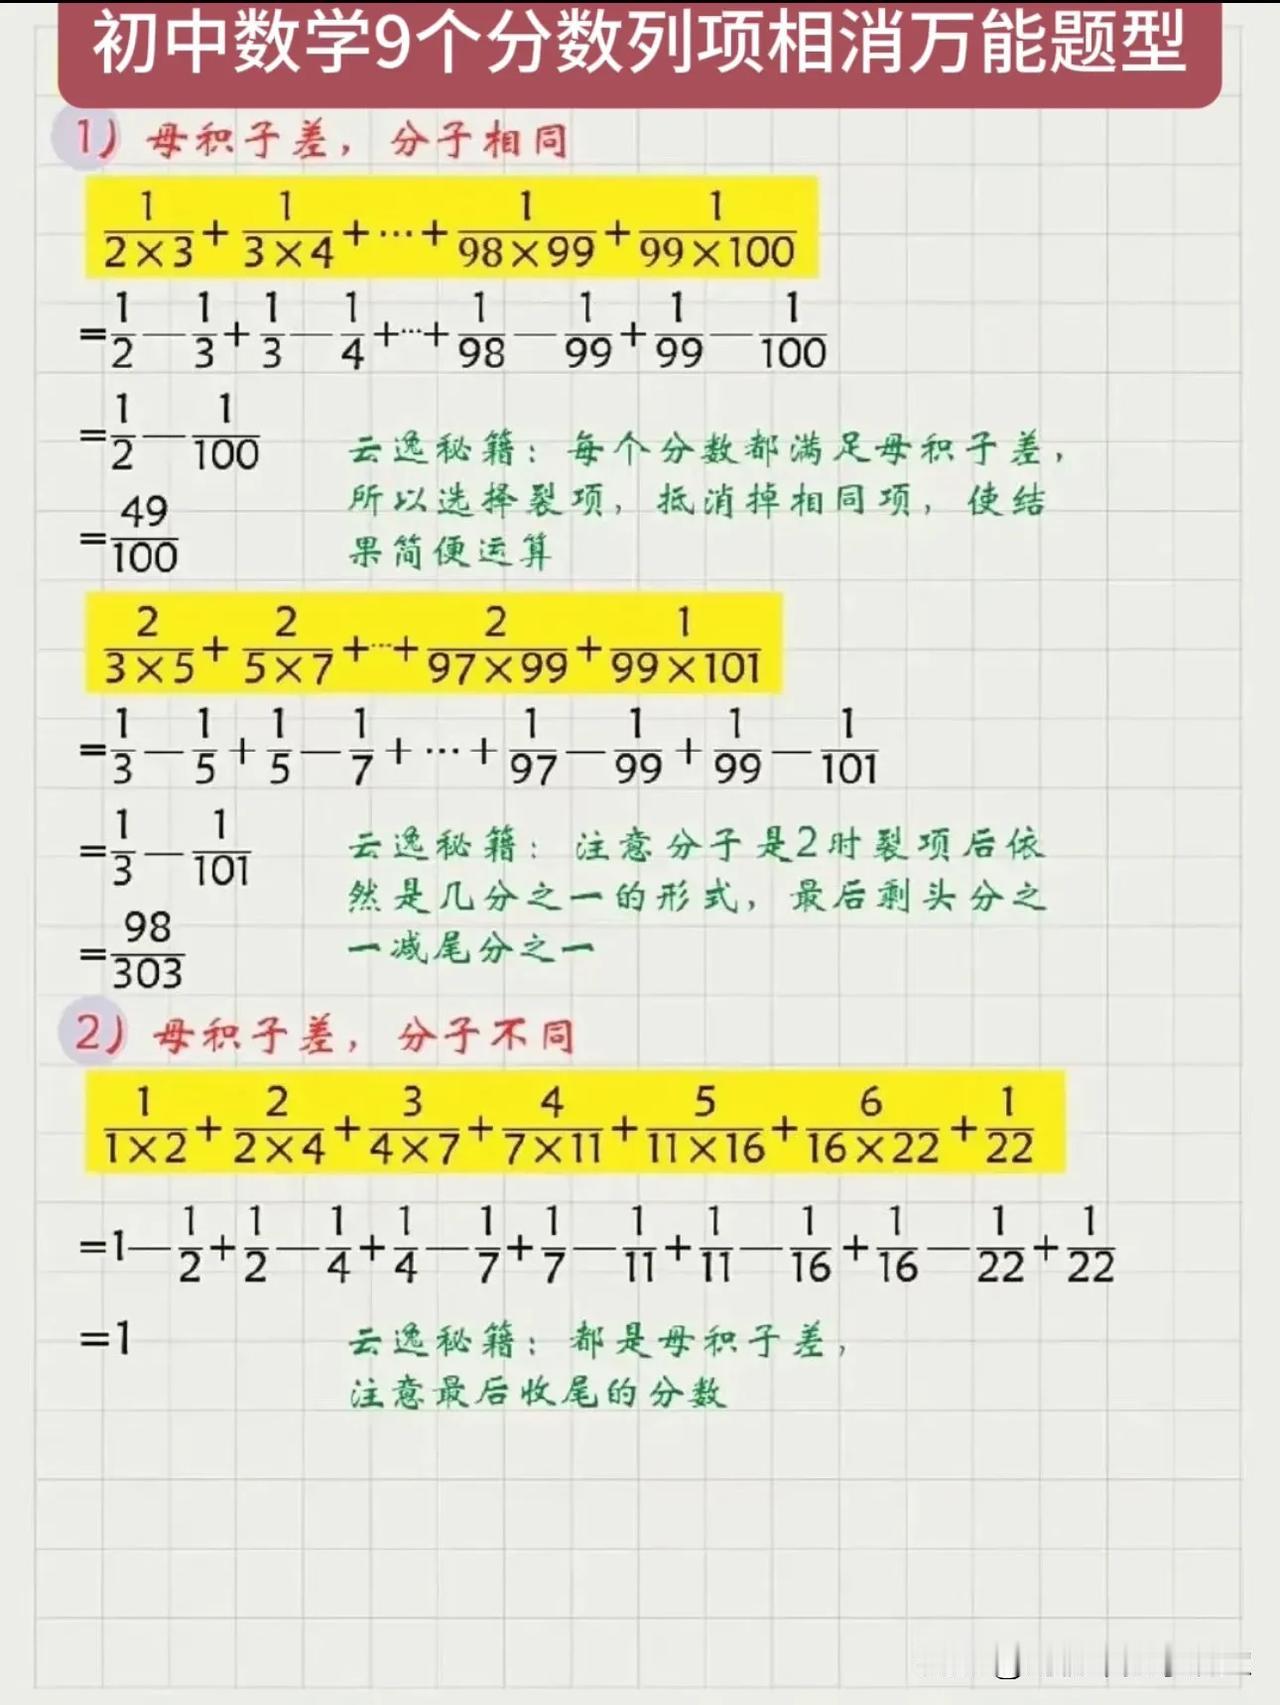 初中数学9个分数列项相消万能题型
1) 母积子差，分子相同
1/(2×3)+1/(3×4)+···+1/(98×99)+1/(99×100)
=1/2—1/3+1/3—1/4+···+1/98—1/99+1/99—1/100
=1/2—1/100
=49/100
云逸秘籍：每个分数都满足母积子差，
所以选择裂项，抵消掉相同项，使结
果简便运算
2/(3×5)+2/(5×7)+···+2/(97×99)+1/(99×101)
=1/3—1/5+1/5—1/7+···+1/97—1/99+1/99—1/101
=1/3—1/101
=98/303
云逸秘籍：注意分子是2时裂项后依
然是几分之一的形式，最后剩头分之
一减尾分之一
2) 母积子差，分子不同
1/(1×2)+2/(2×4)+3/(4×7)+4/(7×11)+5/(11×16)+6/(16×22)+1/22
=1—1/2+1/2—1/4+1/4—1/7+1/7—1/11+1/11—1/16+1/16—1/22+1/22
=1
云逸秘籍：都是母积子差，
注意最后收尾的分数